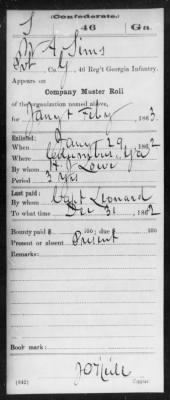 (Confederate.)
S 46 Ga.
A. Sims
Pvt, Co. G, 46 Reg't Georgia Infantry.
Appears on
Company Muster Roll
of the organization named above,
for Jany & Feby, 1863.
Enlisted:
When Jany 29, 1862
Where Columbus, Ga
By whom J. Lowe
Period 3 yrs
Last paid:
By whom Capt Leonard
To what time Dec 31, 1862
Bounty paid $ 100; due $ 100
Present or absent Present
Remarks:
Book mark:
(642) Copyist.